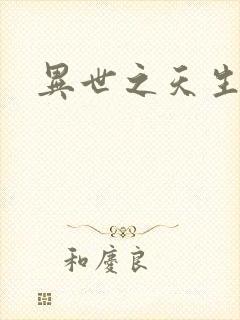 異世之天生
和慶良